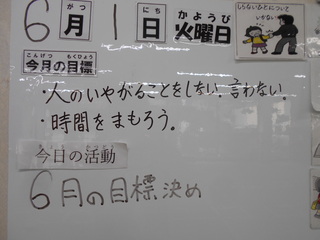 6月1日火曜日
がつ にち かようび
しらないひとについて
いかない
こんげつ もくひょう
今月の目標
・人のいやがることをしない、言わない。
・時間をまもろう。
今日の活動
6月の目標決め